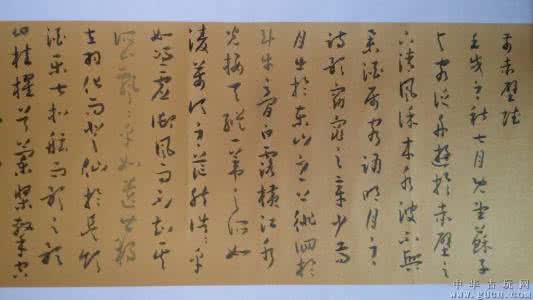 前赤壁賦
壬戌之秋七月既望蘇子
與客泛舟遊於赤壁之
下清風徐來水波不興
舉酒屬客誦明月之
詩歌窈窕之章少焉
月出於東山之上徘徊於
斗牛之間白露橫江水
光接天縱一葦之所如
凌萬頃之茫然浩浩乎
如馮虛御風而不知其
所止飄飄乎如遺世獨
立羽化而登仙於是飲
酒樂甚扣舷而歌之歌
曰桂櫂兮蘭槳擊空
中华古玩网
www.gucn.com